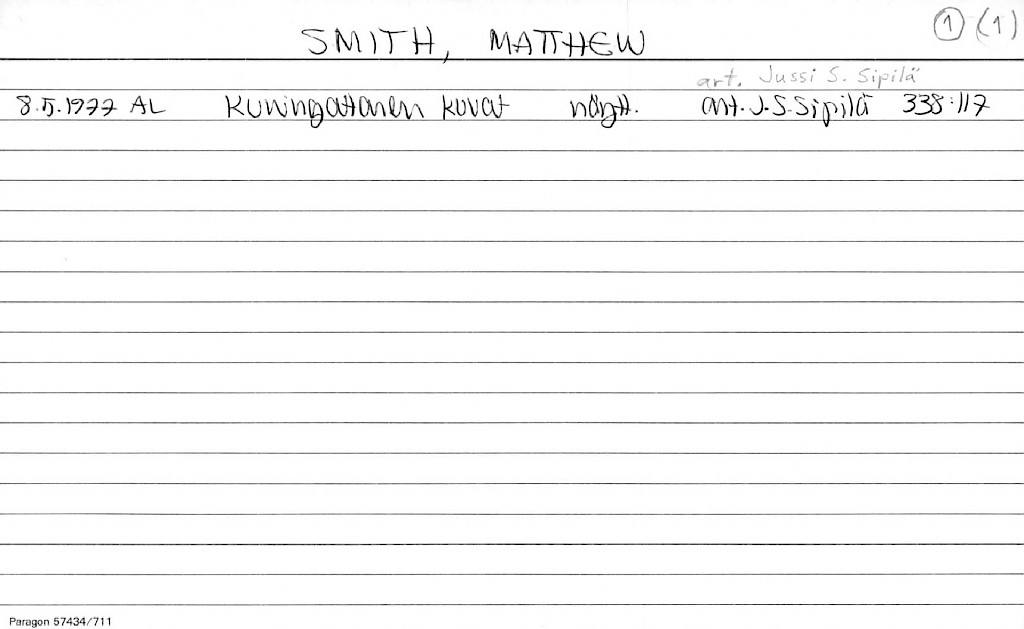 SMITH, MATTHEW
① (1)
art. Jussi S. Sipilä
8.5.1977 AL Kuningattaren kuvat näytt. art. J.S.Sipilä 338:117
Paragon 57434/711